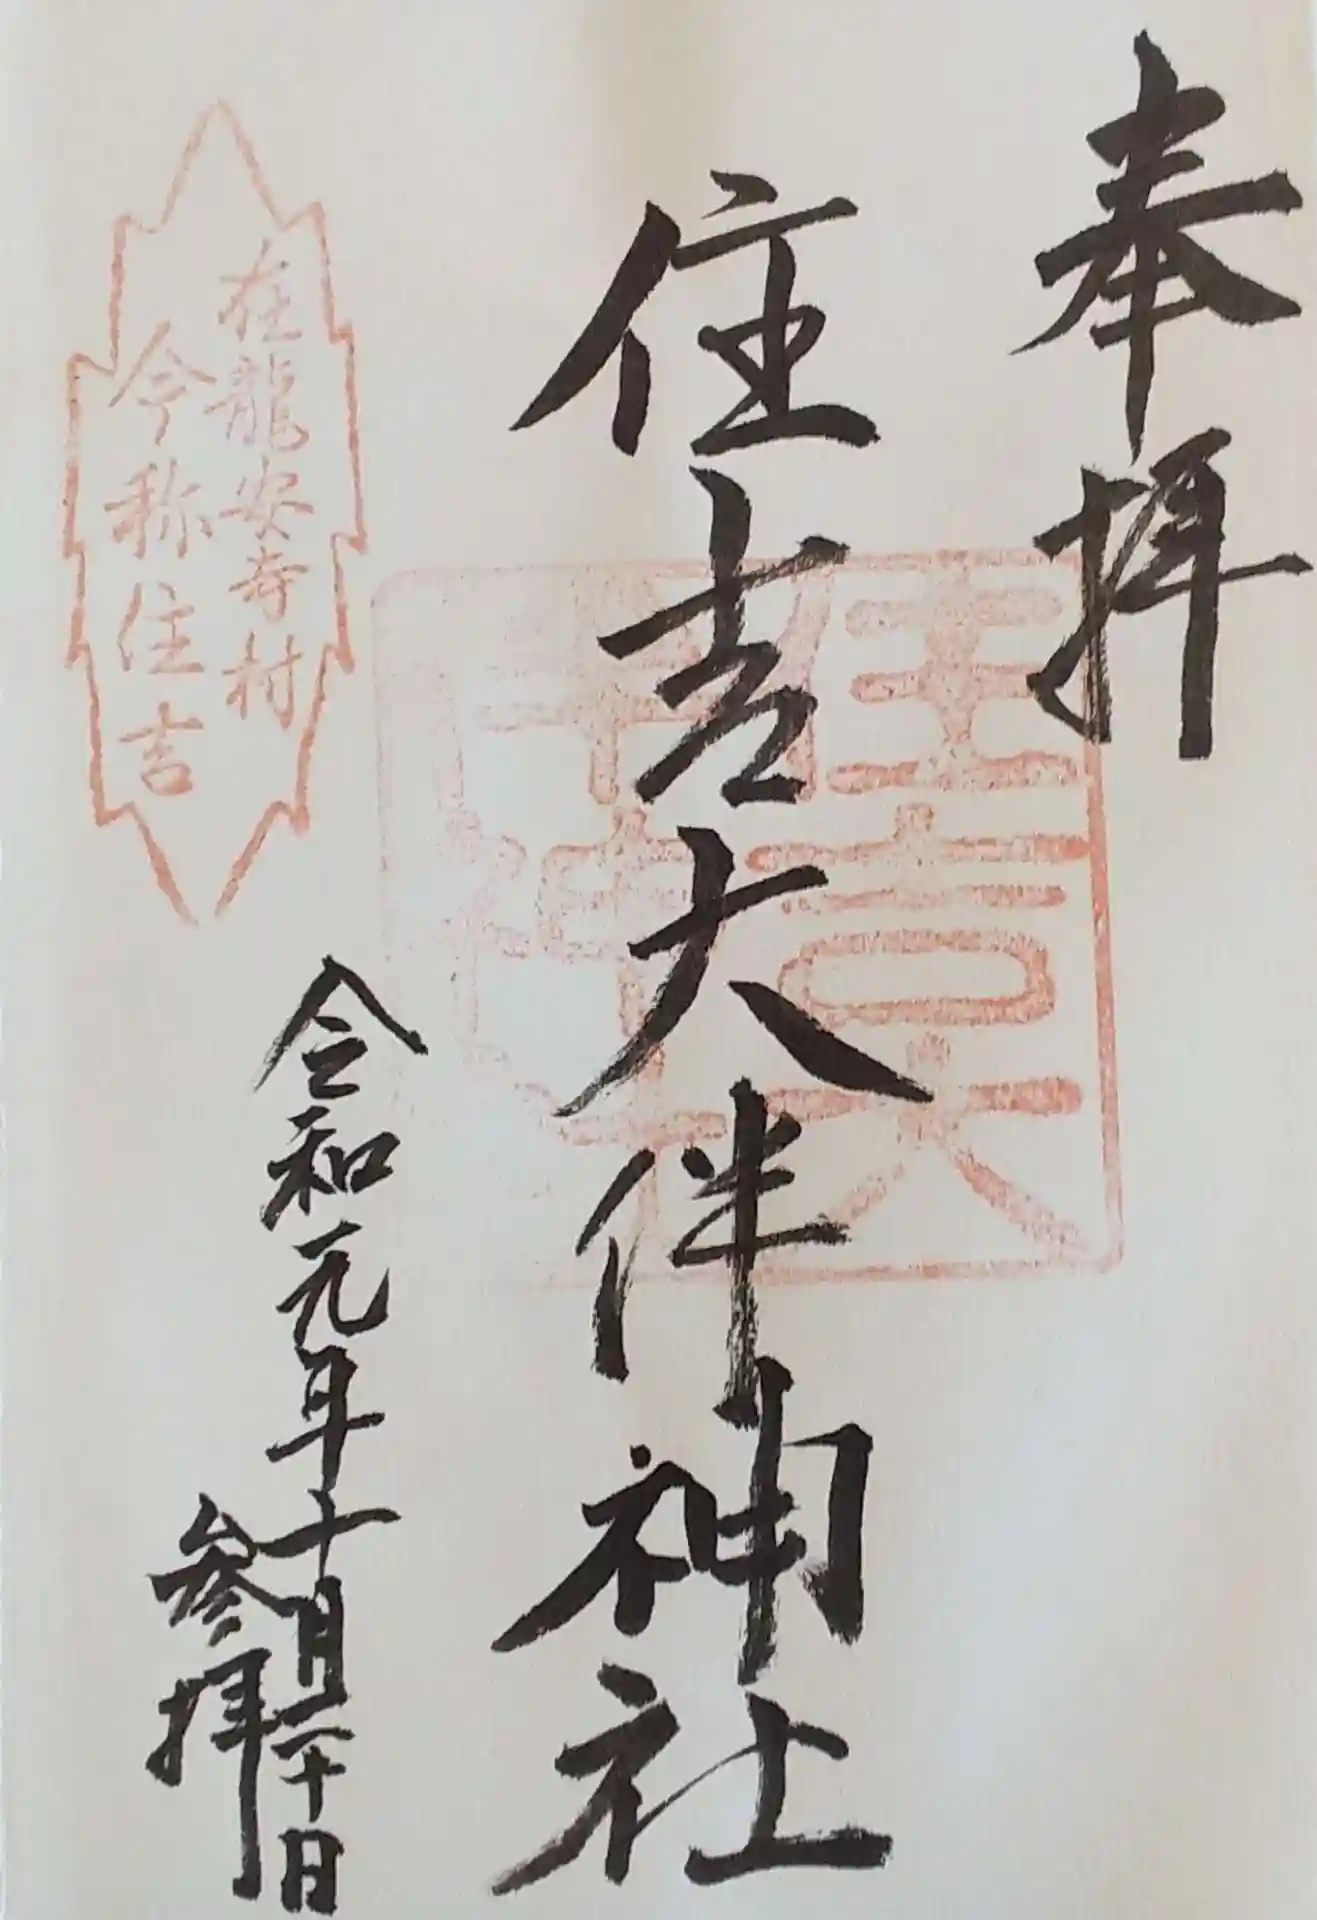 奉拝
住吉大伴神社
令和元年十月二十日
参拝
在龍安寺村
今称住吉
住吉大
伴神社